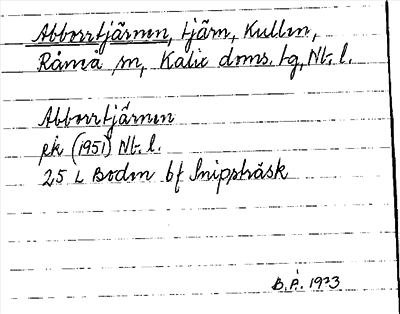 Abborrtjärnen, tjärn, Kullen,
Råneå sn, Kalix doms. tg, Nb. l.
Abborrtjärnen
ek (1951) Nb. l.
25 L Boden bf Snipptråsk
B.P. 1973